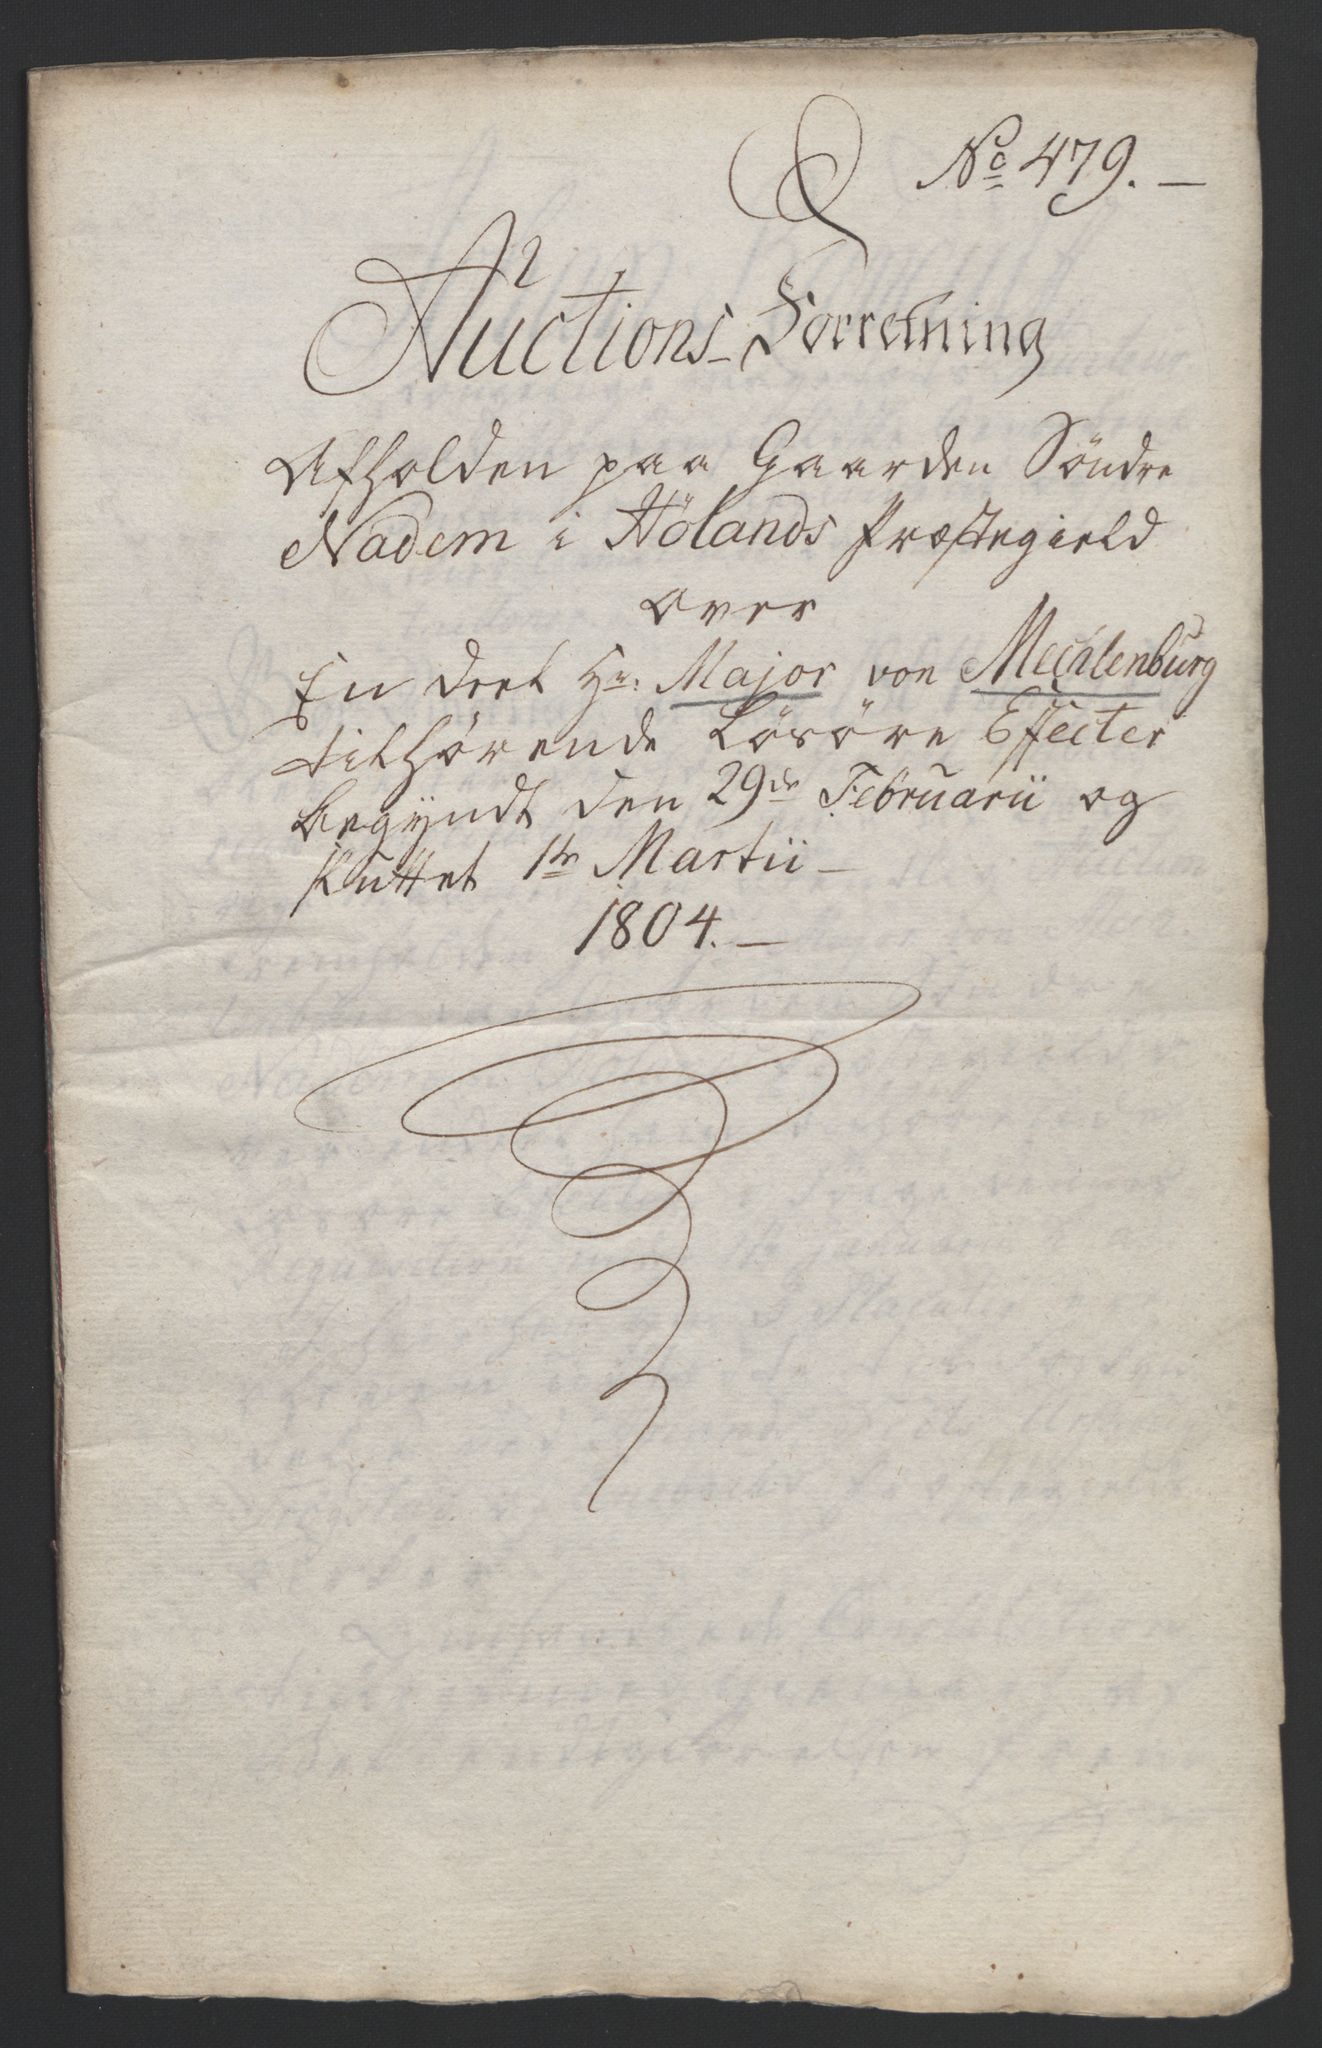 No 479.
Auctions-Forretning
Afholden paa Gaarden Söndre
Nadem i Hölands Præstegield
over
En deel Hr: Major von Mechlenburg
tilhørende Løsøre Effecter
begyndt den 29de Februarii og
sluttet 1te Martii
1804.